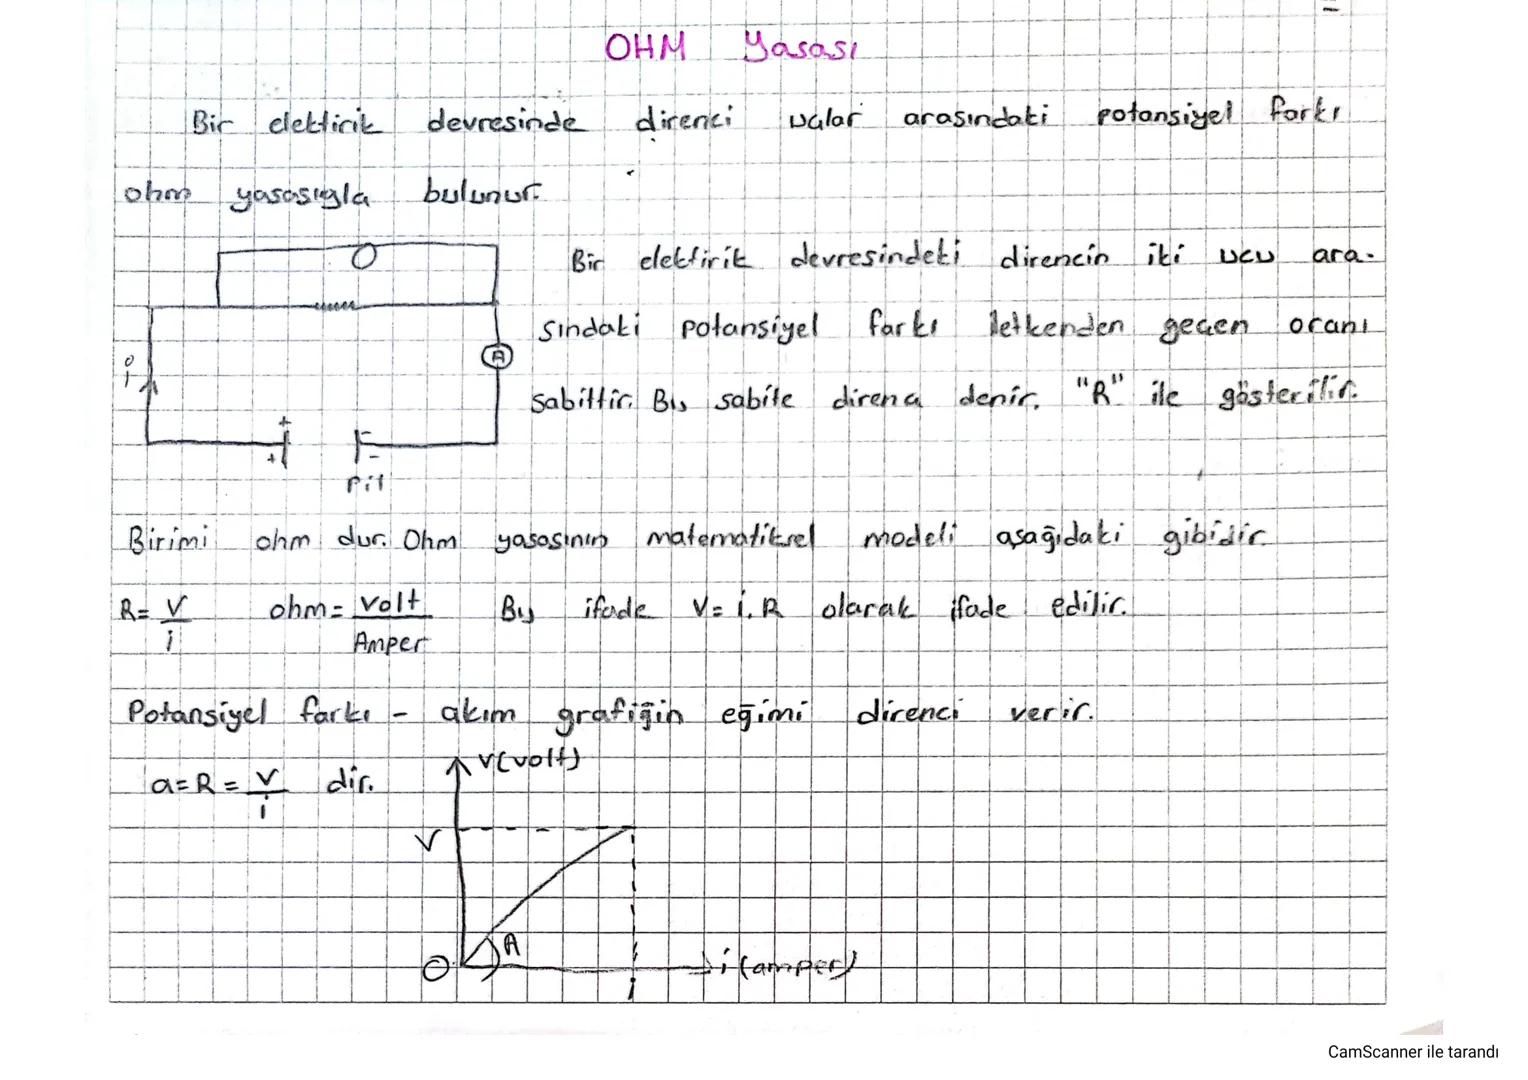 OHM Yasası
Bir elektirik devresinde direnci uçlar arasındaki potansiyel farkı
ohm yasasıyla bulunur.
Bir elektirik devresindeki direncin iki ucu ara-
sındaki potansiyel farkı iletkenden geçen oranı
sabittir. Bu sabite direnci denir. "R" ile gösterilir.
A
i
+
+
-
-
Pil
Birimi ohm dur. Ohm yasasının matematiksel modeli aşağıdaki gibidir.
R= V/i ohm= volt/Amper Bu ifade V= i.R olarak ifade edilir.
Potansiyel farkı - akım grafiğin eğimi direnci verir.
a=R= V/i dir.
V(volt)
V
A
O
i (amper)
i
CamScanner ile tarandı